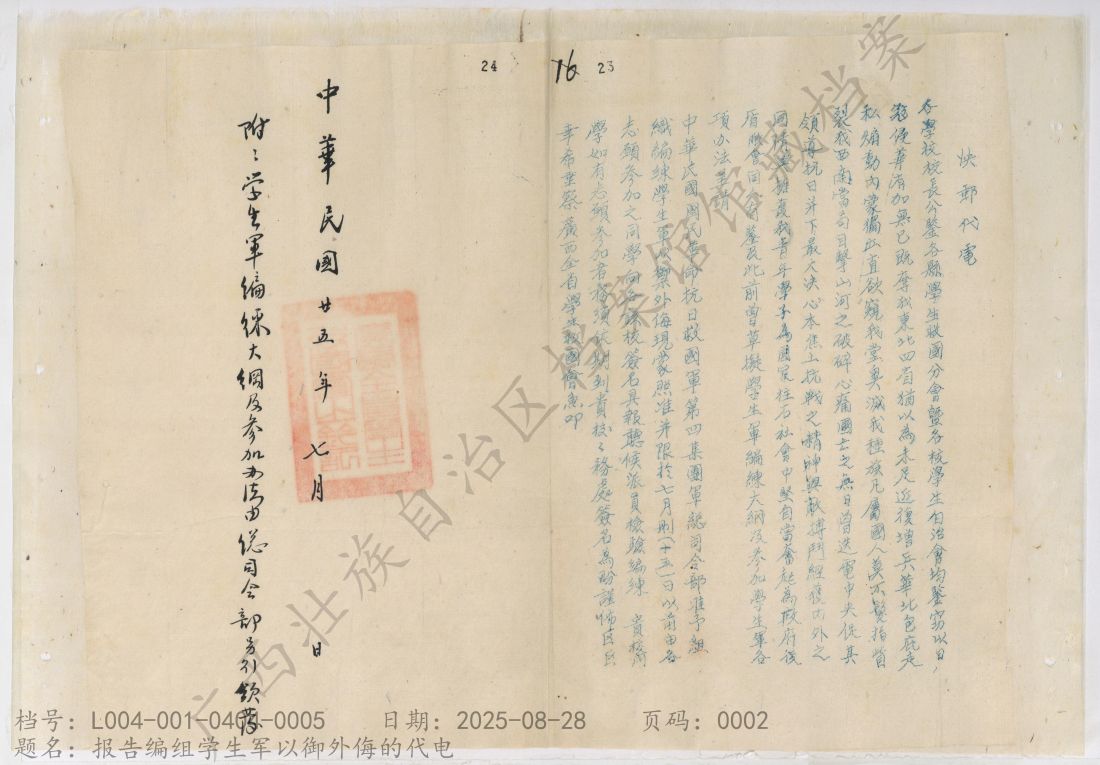 24
76 23
快郵代電
各學校校長公鑒各縣學生救國分會暨各校學生自治會均鑒竊以日
寇侵華有加無已既奪我東北四省猶以為未足近復增兵華北包庇走
私煽動內蒙獨立直欲窺我堂奧滅我種族凡屬國人莫不髮指眥
裂我西南當局目擊山河之破碎心痛國亡之無日曾迭電中央促其
領導抗日并下最大決心本焦土抗戰之精神與敵搏鬥經獲內外之
同情 擁護我青年學子為國家柱石社會中堅自當奮起為政府後
盾 會同 有鑒及此前曾草擬學生軍編練大綱及參加學生軍各
項辦法呈請
中華民國國民革命抗日救國軍第四集團軍總司令部准予組
織編練學生軍以禦外侮現蒙照准并限於七月 十五日以前由各
志願參加之同學向各 校簽名具報聽候派員檢驗編練 貴校同
學如有志願參加者務須依期到貴校校務處簽名為盼謹佈區區
幸希垂察廣西全省學生救國會 叩
中華民國廿五年七月 日
附:学生軍編練大綱及參加办法由總司令部另行頒發
广西壮族自治区档案馆馆藏档案
档号: L004-001-040 -0005 日期: 2025-08-28 页码: 0002
题名: 报告编组学生军以御外侮的代电